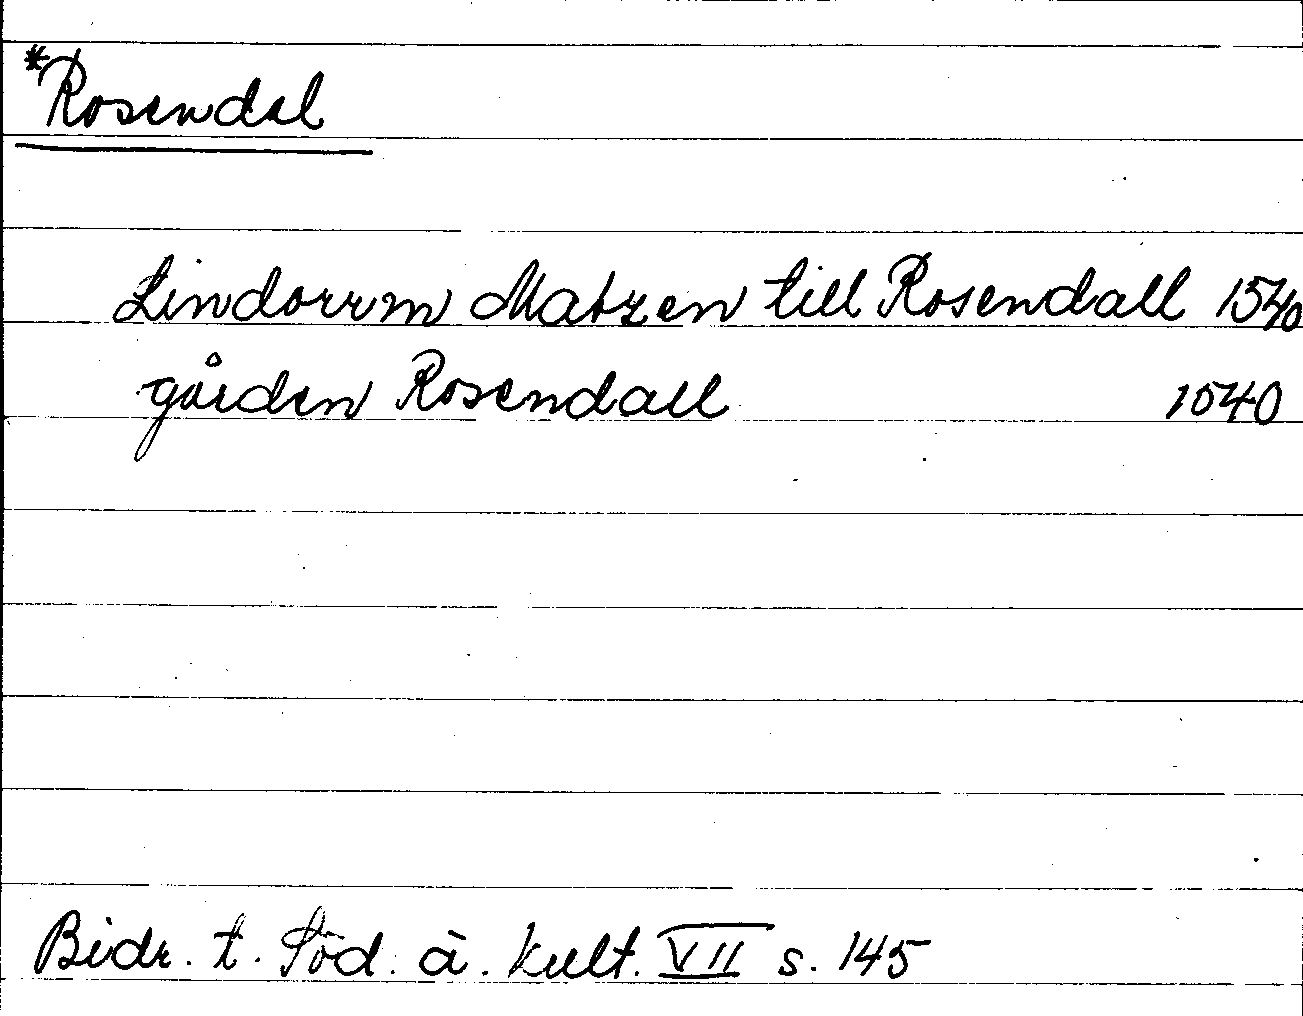 *Rosendal
Lindorrm Matzen till Rosendall 1540
gården Rosendall 1540
Bidr. t. Söd. ä. kult. VII s. 145